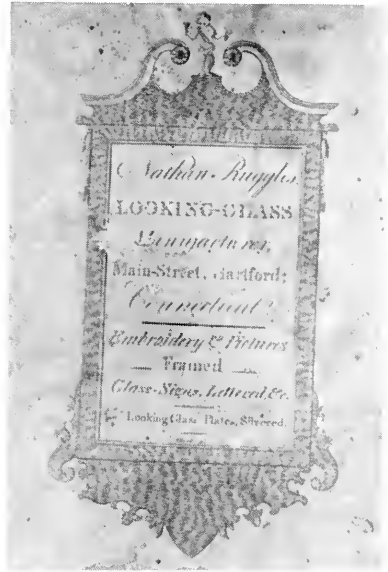 Nathan Ruggles,
LOOKING-GLASS
Manufacturer,
Main-Street, Hartford;
Connecticut.
Embroidery & Pictures
Framed
Glass-Signs, Lettered, &c.
Looking Glass Plates, Silvered.